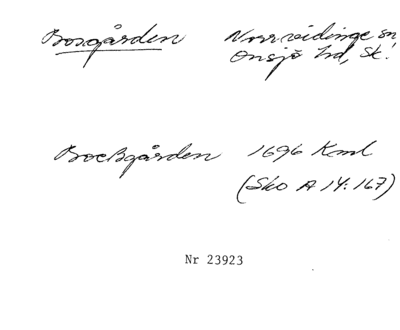 Bosgården Norrvidinge sn
Onsjö hd, Sk.
Boeßgården 1696 Kml
(Sko A 14:167)
Nr 23923